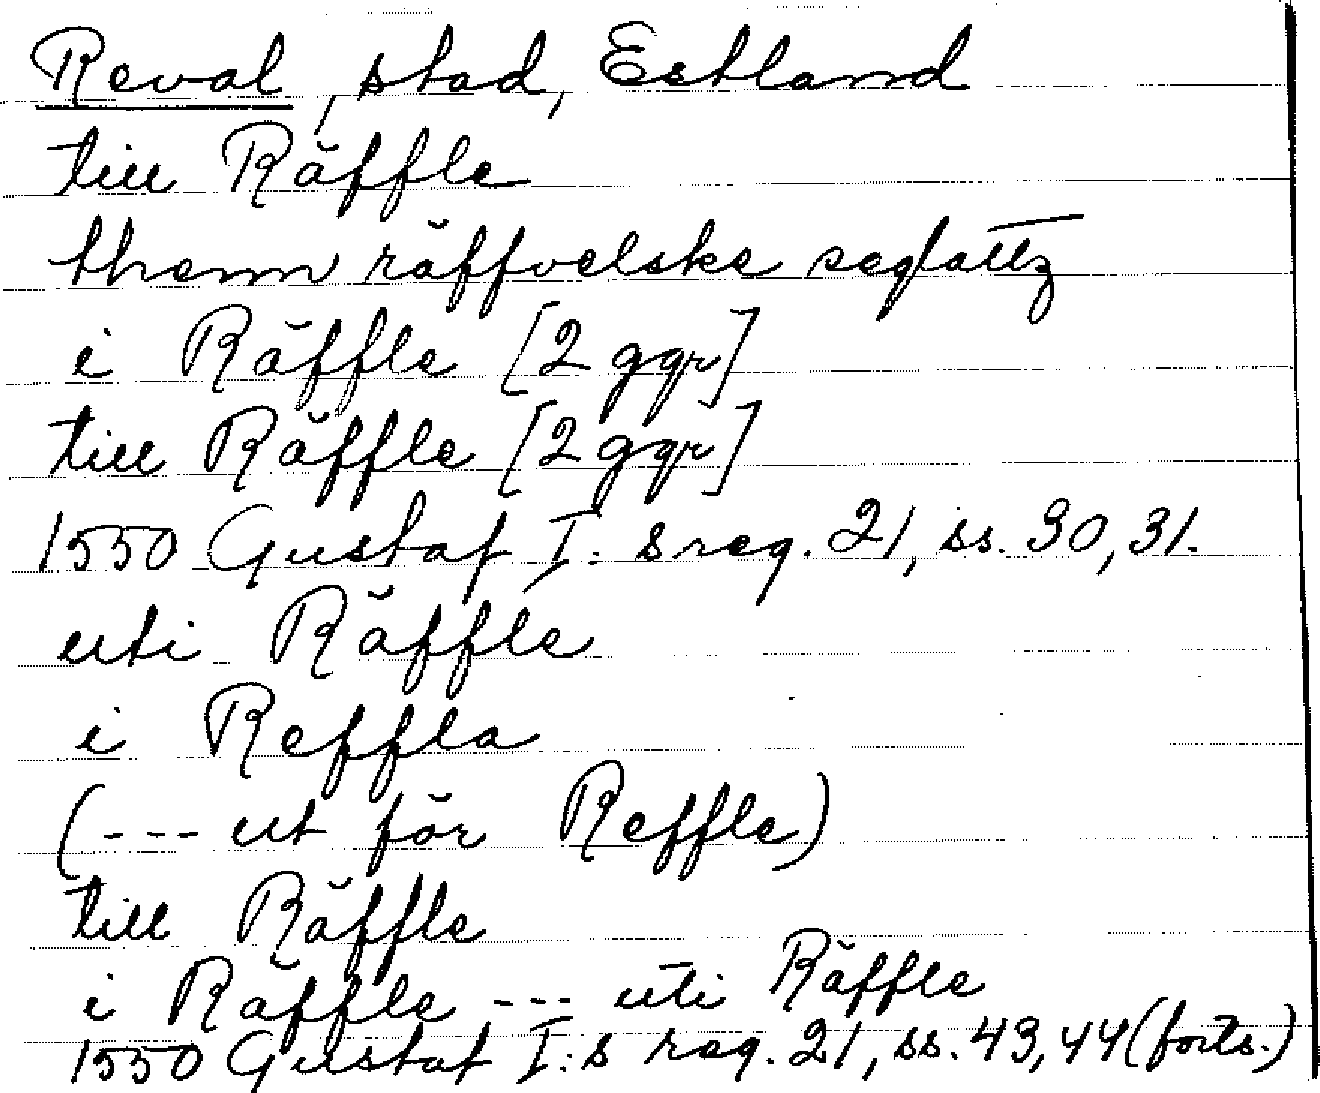 Reval, stad, Estland
till Räffle
thenn räffvelske seglattz
i Räffle [2 ggr]
till Räffle [2 ggr]
1550 Gustaf I:s reg. 21, ss. 30, 31.
uti Räffle
i Reffla
(--- ut för Reffle)
till Räffle
i Räffle --- uti Räffle
1550 Gustaf I:s reg. 21, ss. 43, 44 (forts.)